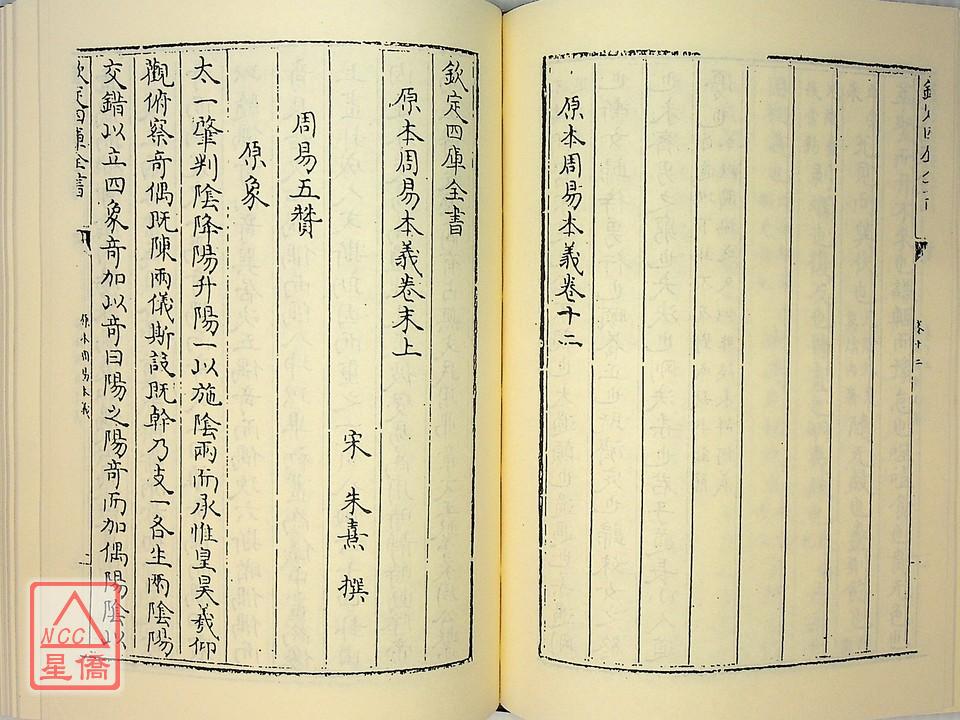 原本周易本義卷十二
欽定四庫全書
原本周易本義卷末上
宋 朱熹 撰
周易五贊
原象
太一肇判陰降陽升陽一以施陰兩而承惟皇昊羲仰
觀俯察奇偶既陳兩儀斯設既幹乃支一各生兩陰陽
交錯以立四象奇加以奇曰陽之陽奇而加偶陽陰以
欽定四庫全書
原本周易本義
NCC
星僑